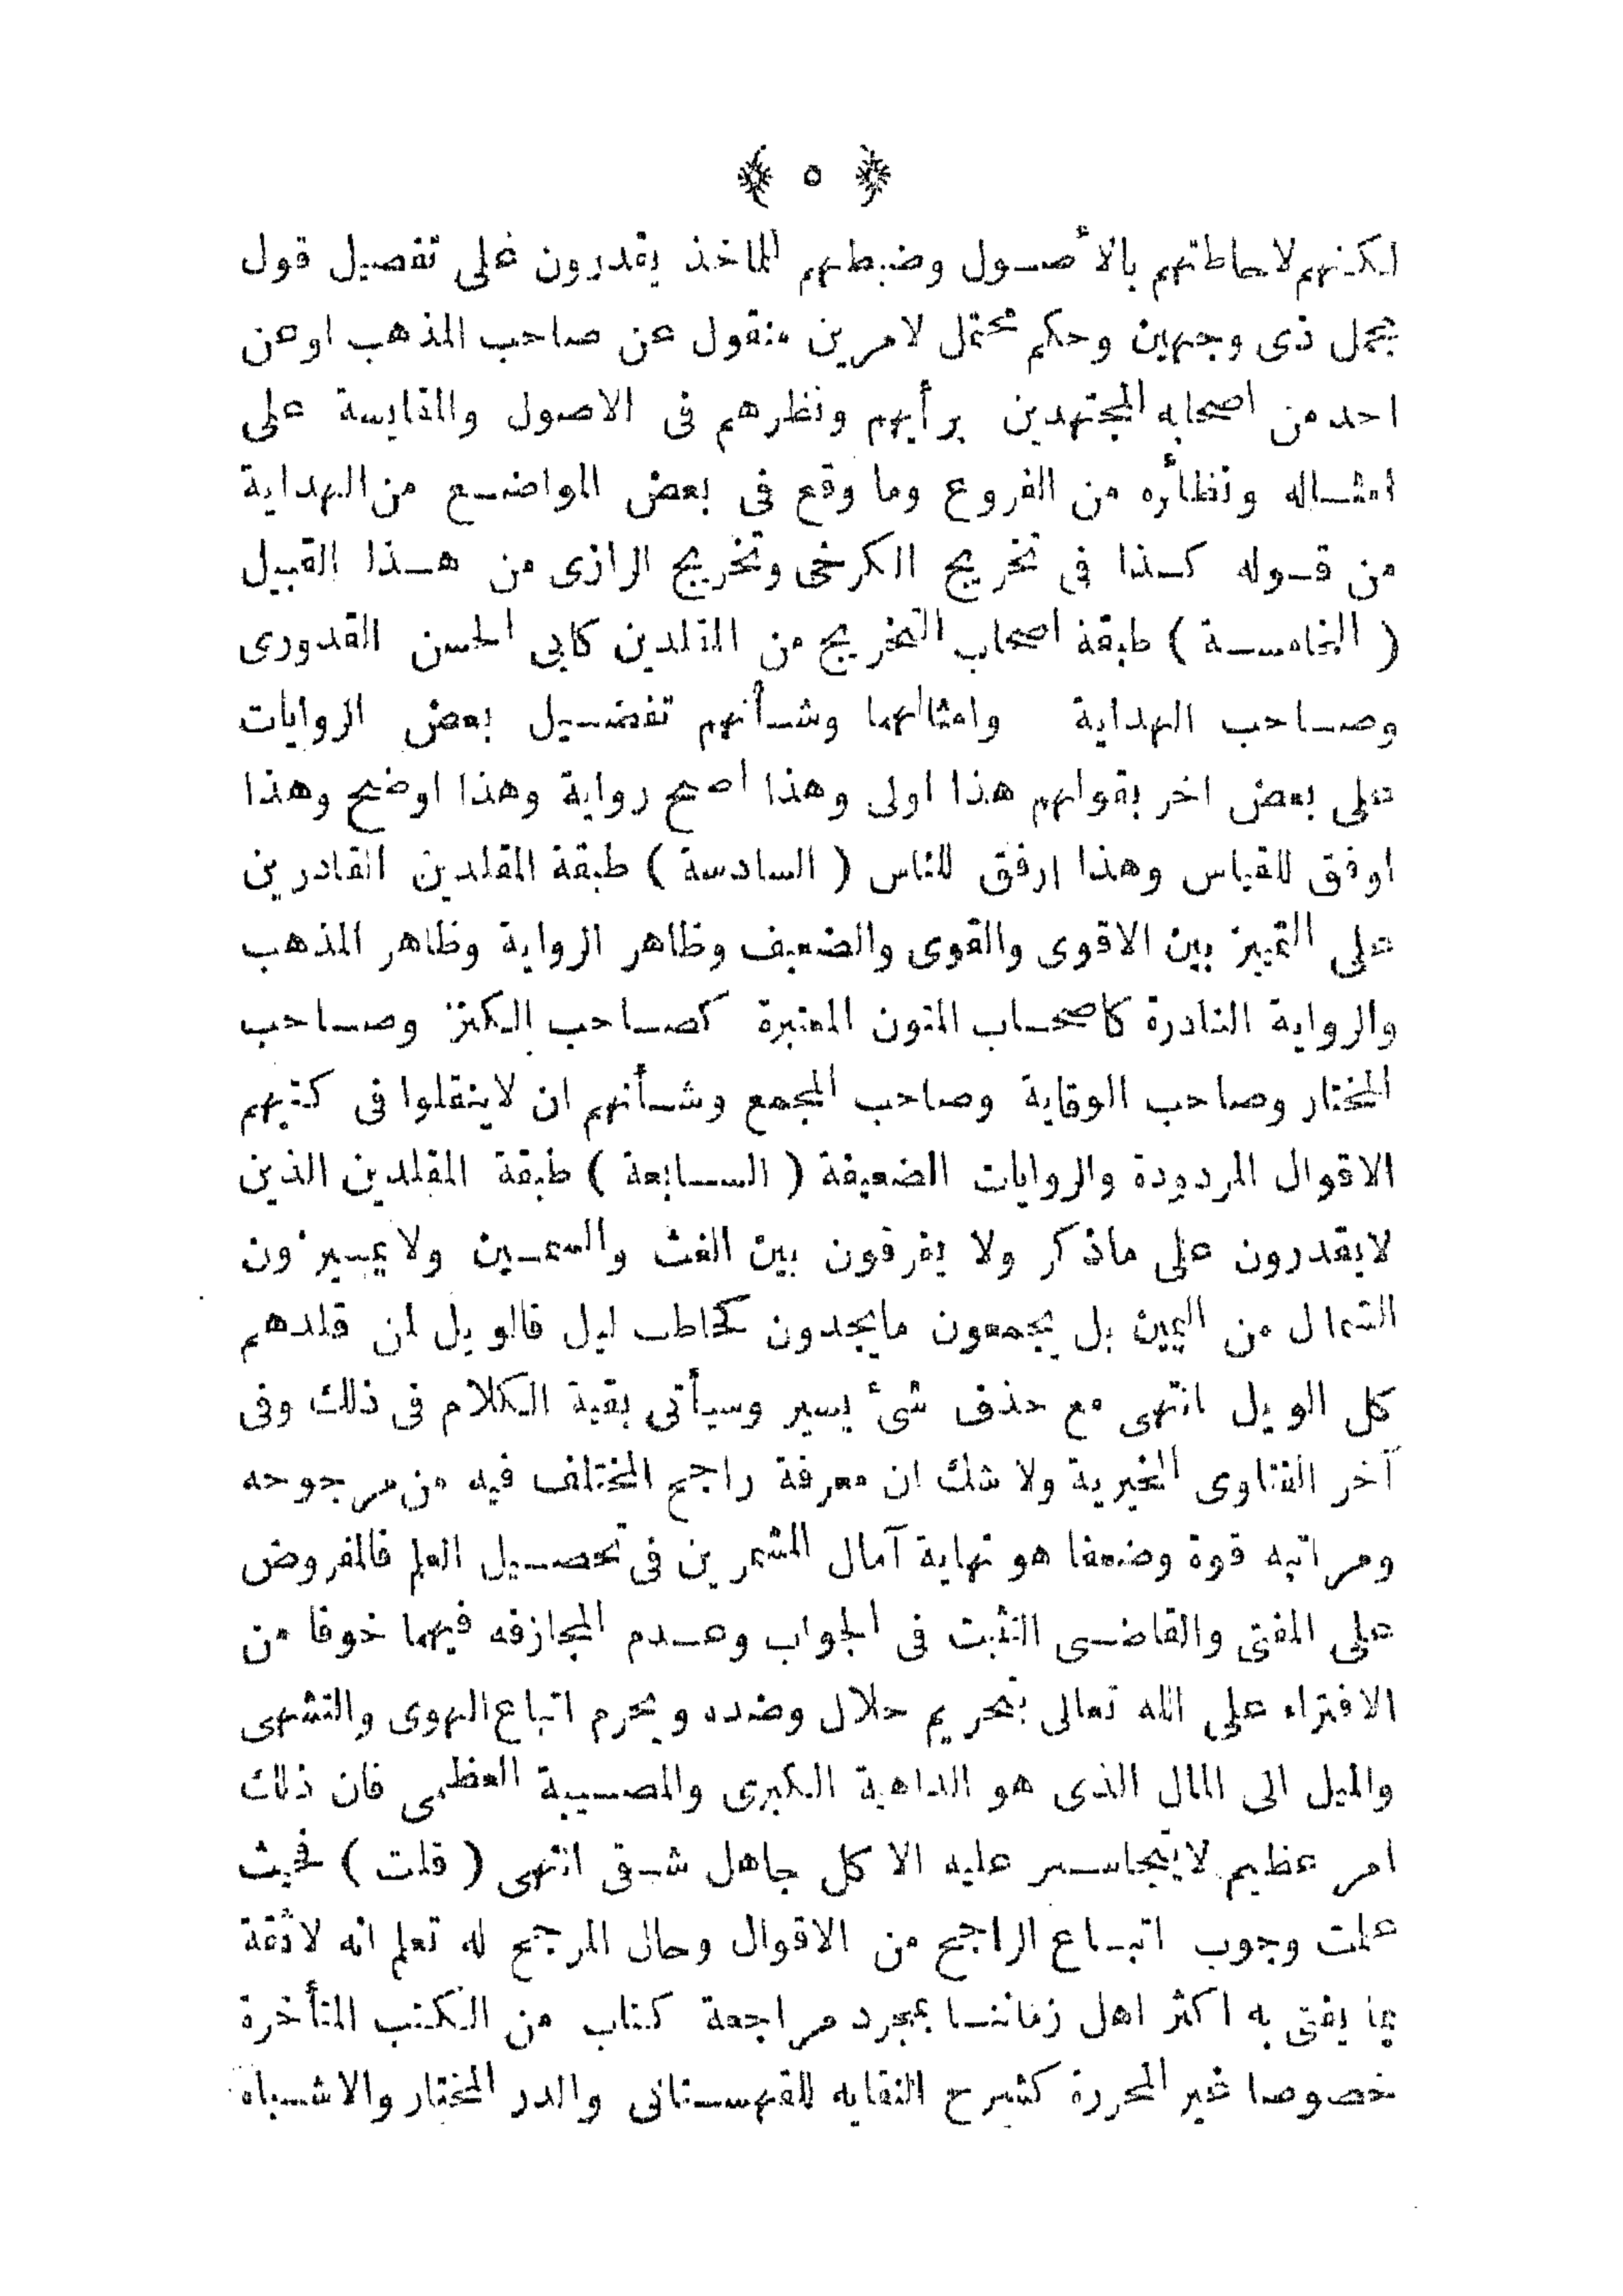 ﴿ ٥ ﴾
لكنهم لاحاطتهم بالأصول وضبطهم للماخذ يقدرون على تفصيل قول
مجمل ذى وجهين وحكم محتمل لامرين منقول عن صاحب المذهب اوعن
احد من اصحابه المجتهدين برأيهم ونظرهم فى الاصول والمقايسة على
امثاله ونظائره من الفروع وما وقع فى بعض المواضع من الهداية
من قوله كذا فى تخريج الكرخى وتخريج الرازى من هذا القبيل
( الخامسة ) طبقة اصحاب التخريج من المقلدين كابى الحسن القدورى
وصاحب الهداية وامثالهما وشأنهم تفضيل بعض الروايات
على بعض اخر بقولهم هذا اولى وهذا اصح رواية وهذا اوضح وهذا
اوفق للقياس وهذا ارفق للناس ( السادسة ) طبقة المقلدين القادرين
على التمييز بين الاقوى والقوى والضعيف وظاهر الرواية وظاهر المذهب
والرواية النادرة كاصحاب المتون المعتبرة كصاحب الكنز وصاحب
المختار وصاحب الوقاية وصاحب المجمع وشأنهم ان لاينقلوا فى كتبهم
الاقوال المردودة والروايات الضعيفة ( السابعة ) طبقة المقلدين الذين
لايقدرون على ماذكر ولا يفرقون بين الغث والسمين ولا يميزون
الشمال من اليمين بل يجمعون مايجدون كحاطب ليل فالويل لمن قلدهم
كل الويل انتهى مع حذف شئ يسير وسيأتى بقية الكلام فى ذلك وفى
آخر الفتاوى الخيرية ولا شك ان معرفة راجح المختلف فيه من مرجوحه
ومراتبه قوة وضعفا هو نهاية آمال المشمرين فى تحصيل العلم فالمفروض
على المفتى والقاضى التثبت فى الجواب وعدم المجازفه فيهما خوفا من
الافتراء على الله تعالى بتحريم حلال وضده ويحرم اتباع الهوى والتشهى
والميل الى المال الذى هو الداهية الكبرى والمصيبة العظمى فان ذلك
امر عظيم لايتجاسر عليه الا كل جاهل شقى انتهى ( قلت ) فحيث
علمت وجوب اتباع الراجح من الاقوال وحال المرجح له تعلم انه لاثقة
بما يفتى به اكثر اهل زماننا بمجرد مراجعة كتاب من الكتب المتأخرة
خصوصا غير المحررة كشرح النقايه للقهستانى والدر المختار والاشباه